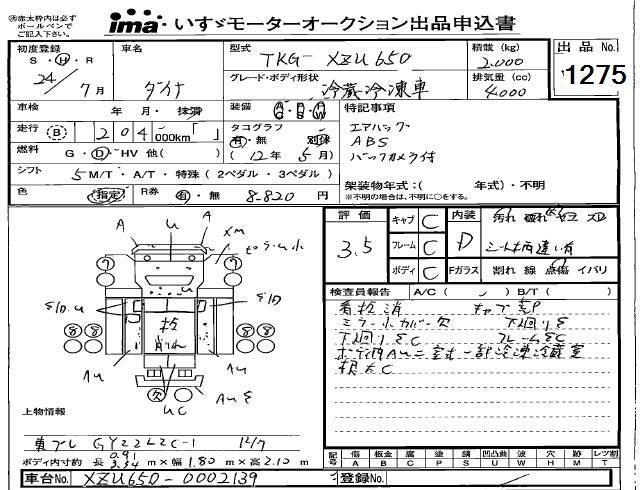 ※赤太枠内は必ず
ボールペンで
ご記入下さい。
ima いすゞモーターオークション出品申込書
初度登録
S・H・R
24/7月
車名
ダイナ
型式
TKG-XZU650
積載(kg)
2.000
グレード・ボディ形状
冷蔵冷凍車
排気量(cc)
4000
出品No.
1275
車検 年・月・抹消
装備 A/C P/S P/W
特記事項
エアバッグ
ABS
バックカメラ付
走行 B 204,000km「 」
タコグラフ
有・無
(12年5月)
燃料 G・D・HV 他( )
シフト 5M/T・A/T・特殊(2ペダル・3ペダル)
架装物年式:( 年式)・不明
※不明の場合は、不明に○をする。
色 (指定)
R券 有・無 8.820円
評価
3.5
キャブ C
フレーム C
ボディ C
内装
D
汚れ 破れ
シート柄違い有
Fガラス 割れ 線 点傷 イバリ
検査員報告 A/C( ) B/T( )
看板消
ミラー小カバー欠
下廻りSC
フレームSC
損大C
A
A
u
XM
7
7
8 8
8 8
板
Au
Au
欠
uC
上物情報
東プレ GY22L2C-1 12/7
ボディ内寸約 長 0.91 3.34m×幅1.80m×高2.10m
記号 傷A 板金B 腐C 塗P 錆S 凹凸曲U 波W 穴H 跡M レツ割T
車台No. XZU650-0002139
登録No.